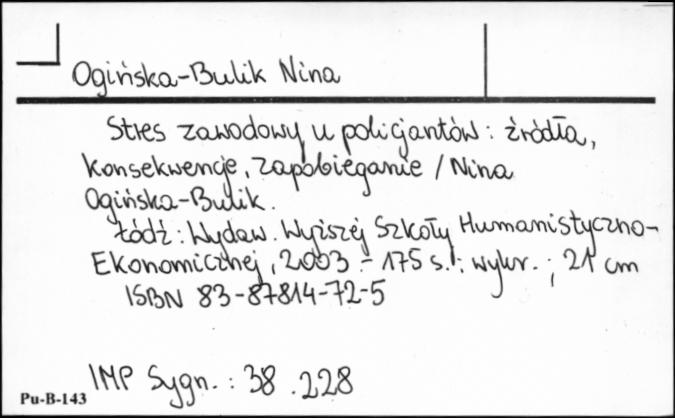 Ogińska-Bulik Nina
Stres zawodowy u policjantów: źródła,
konsekwencje, zapobieganie / Nina
Ogińska-Bulik.
Łódź: Wydaw. Wyższej Szkoły Humanistyczno-
Ekonomicznej, 2003. - 175 s.: wykr. ; 21 cm
ISBN 83-87814-72-5
IMP Sygn. : 38.228
Pu-B-143